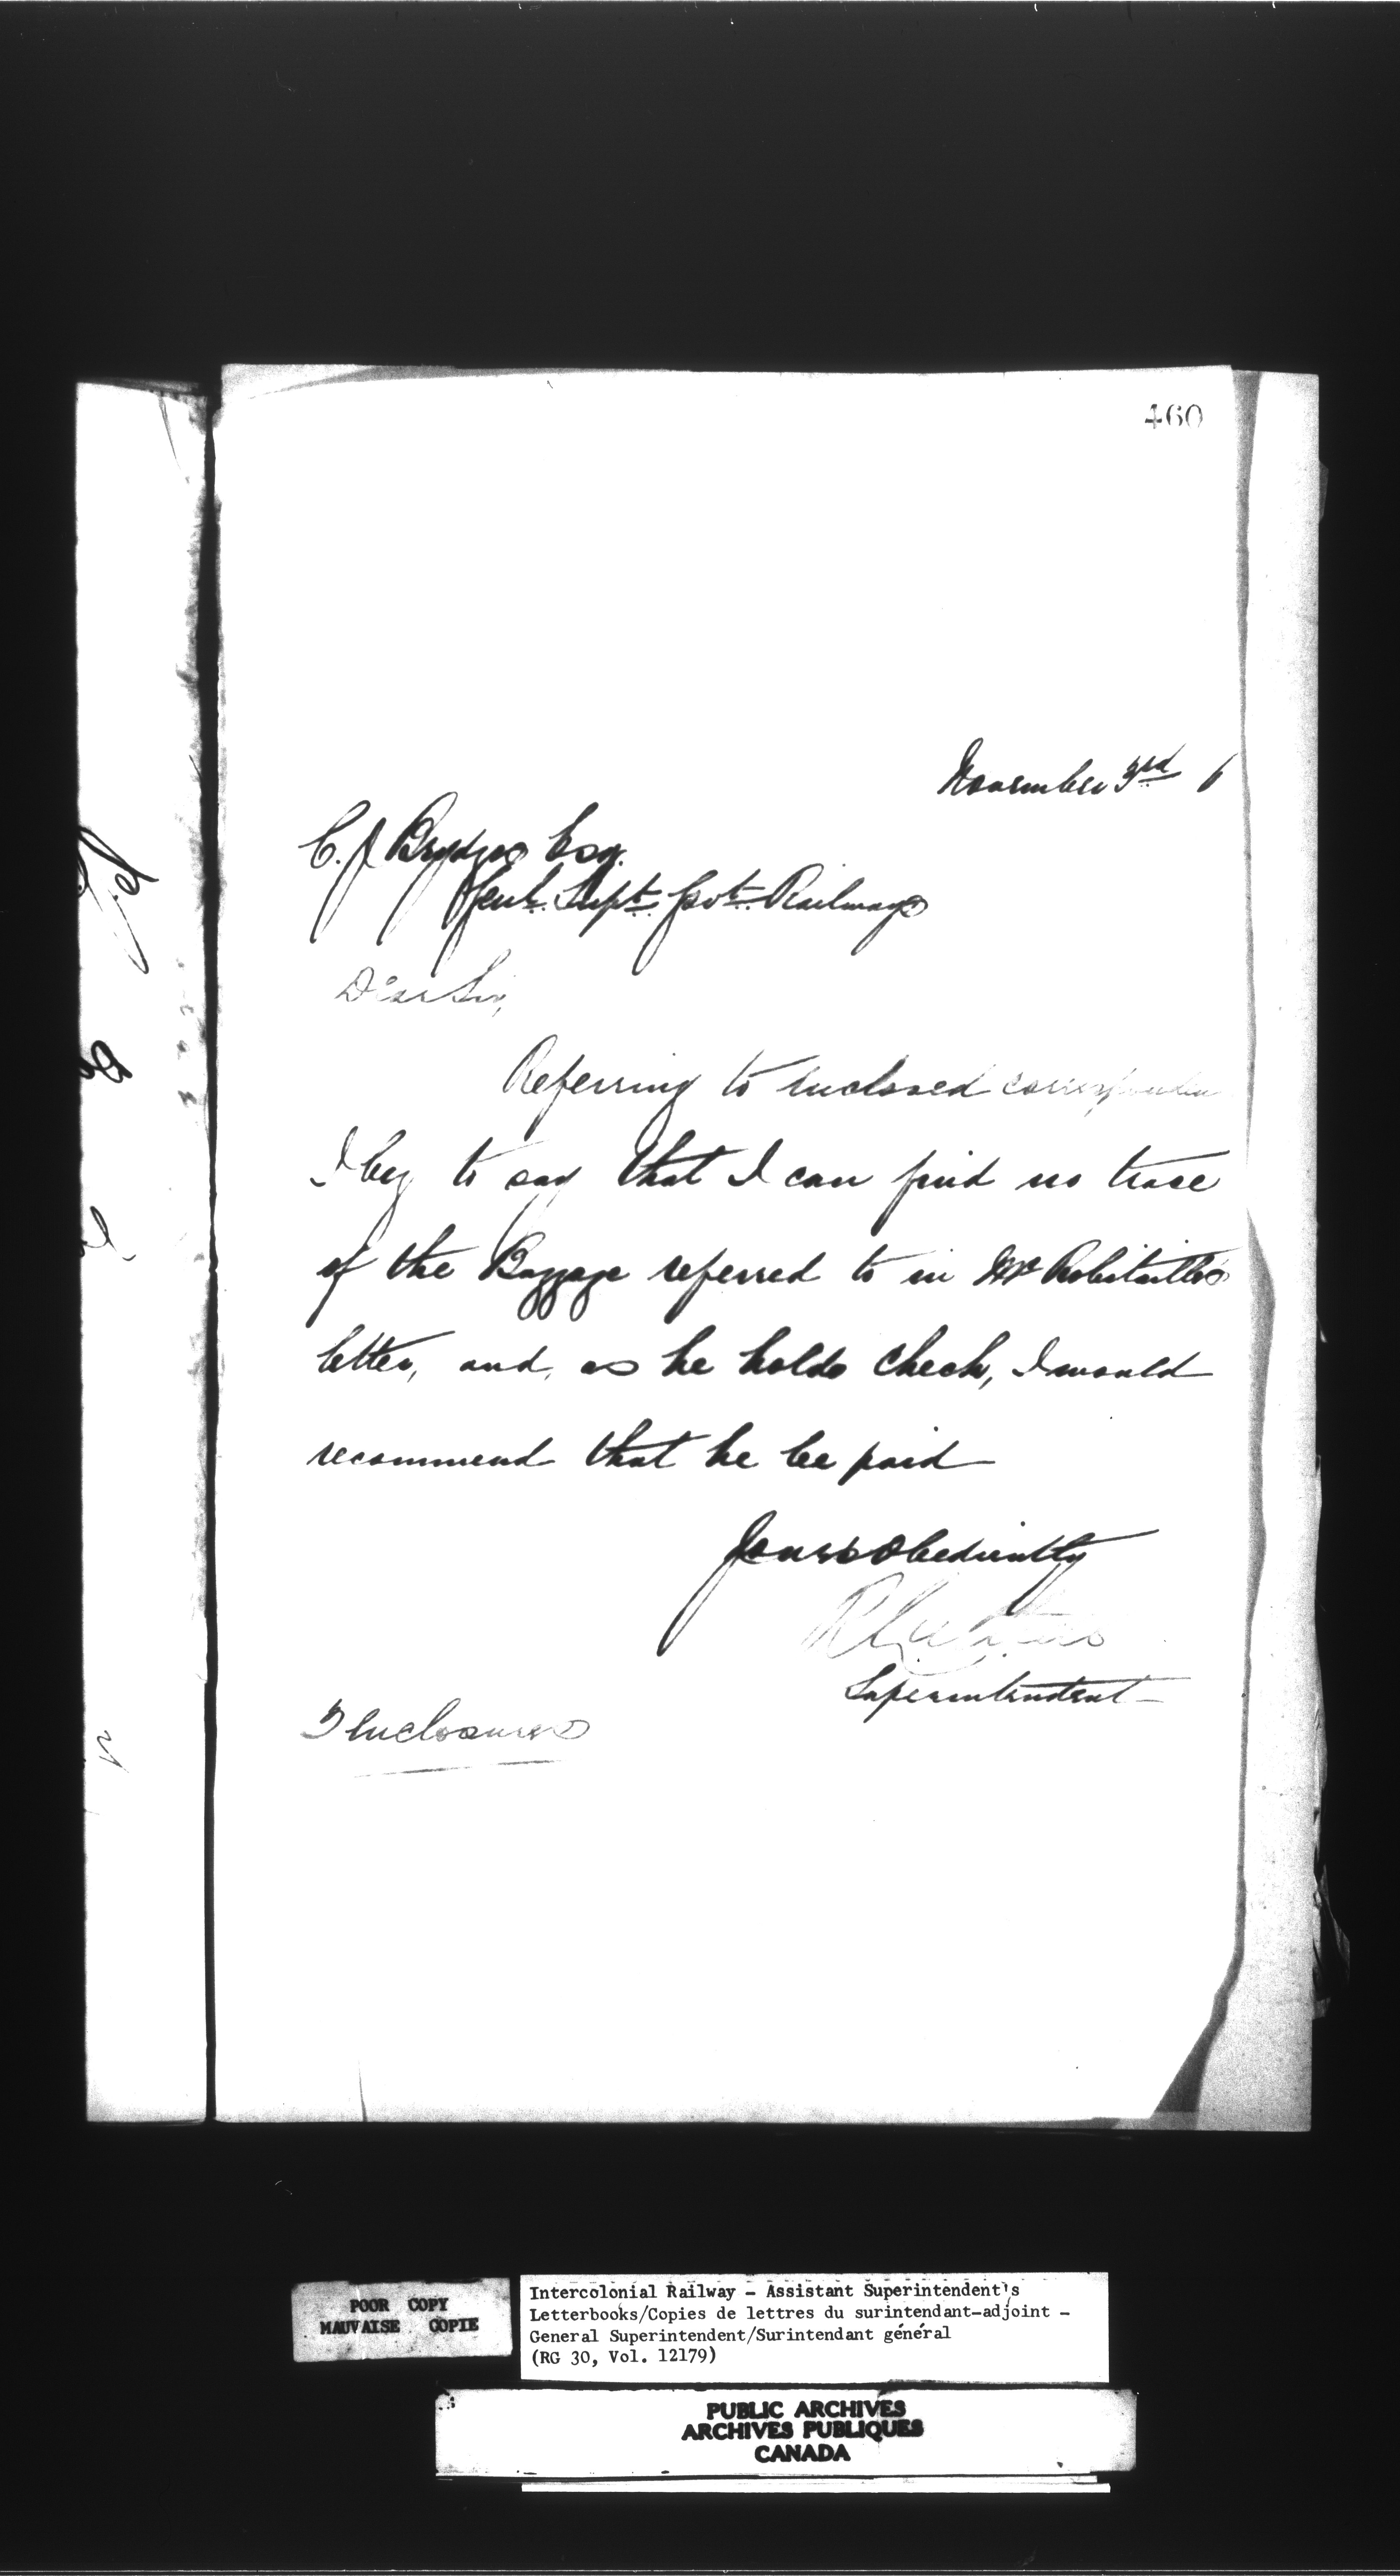 460
November 3rd 6
C. J. Brydges Esq.
Genl. Supt. Govt. Railways
Dear Sir,
Referring to enclosed
I beg to say that I can find no trace
of the Baggage referred to in Mr Robitaille's
letter, and, as he holds check, I would
recommend that he be paid
Yours Obediently
Superintendent
Enclosures
POOR COPY
MAUVAISE COPIE
Intercolonial Railway – Assistant Superintendent's
Letterbooks/Copies de lettres du surintendant-adjoint –
General Superintendent/Surintendant général
(RG 30, Vol. 12179)
PUBLIC ARCHIVES
ARCHIVES PUBLIQUES
CANADA